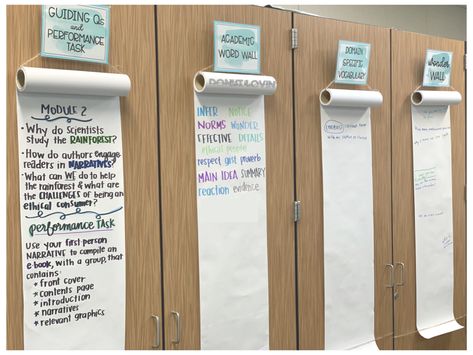 GUIDING Qs
and
PERFORMANCE
TASK
MODULE 2
• Why do Scientists
study the RAINFOREST?
• How do authors engage
readers in NARRATIVES?
• What can WE do to help
the rainforest & what are
the CHALLENGES of being an
ethical consumer?
performance
TASK
Use your first person
NARRATIVE to compile an
e-book, with a group, that
contains:
* front cover
* contents page
* introduction
* narratives
* relevant graphics
ACADEMIC
WORD WALL
INFER NOTICE
NORMS WONDER
EFFECTIVE DETAILS
ethical people
respect gist proverb
MAIN IDEA SUMMARY
reaction evidence
DOMAIN
SPECIFIC
VOCABULARY
wonder
WALL